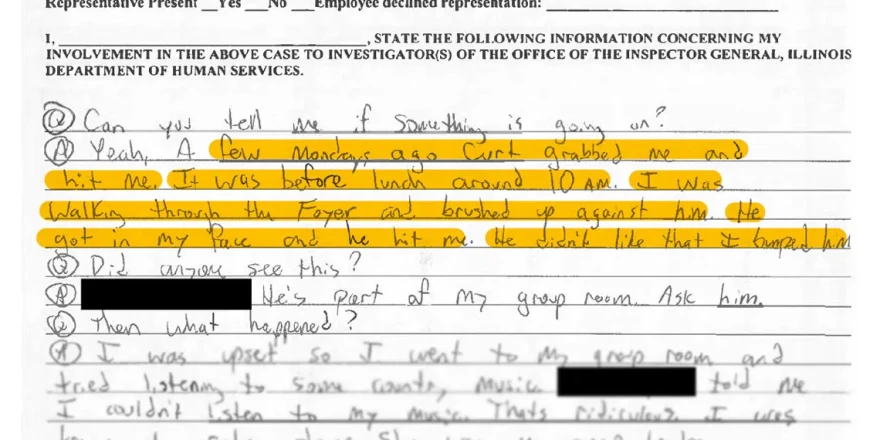 Representative Present __Yes __No __Employee declined representation: ____________
I, ____________, STATE THE FOLLOWING INFORMATION CONCERNING MY
INVOLVEMENT IN THE ABOVE CASE TO INVESTIGATOR(S) OF THE OFFICE OF THE INSPECTOR GENERAL, ILLINOIS
DEPARTMENT OF HUMAN SERVICES.
Q Can you tell me if something is going on?
A Yeah, A few Mondays ago Curt grabbed me and
hit me. It was before lunch around 10 AM. I was
Walking through the Foyer and brushed up against him. He
got in my face and he hit me. He didn't like that I bumped him
Q Did anyone see this?
A He's part of my group room. Ask him.
Q Then what happened?
A I was upset so I went to my group room and
tried listening to some country music. told me
I couldn't listen to my music. Thats ridiculous. I was